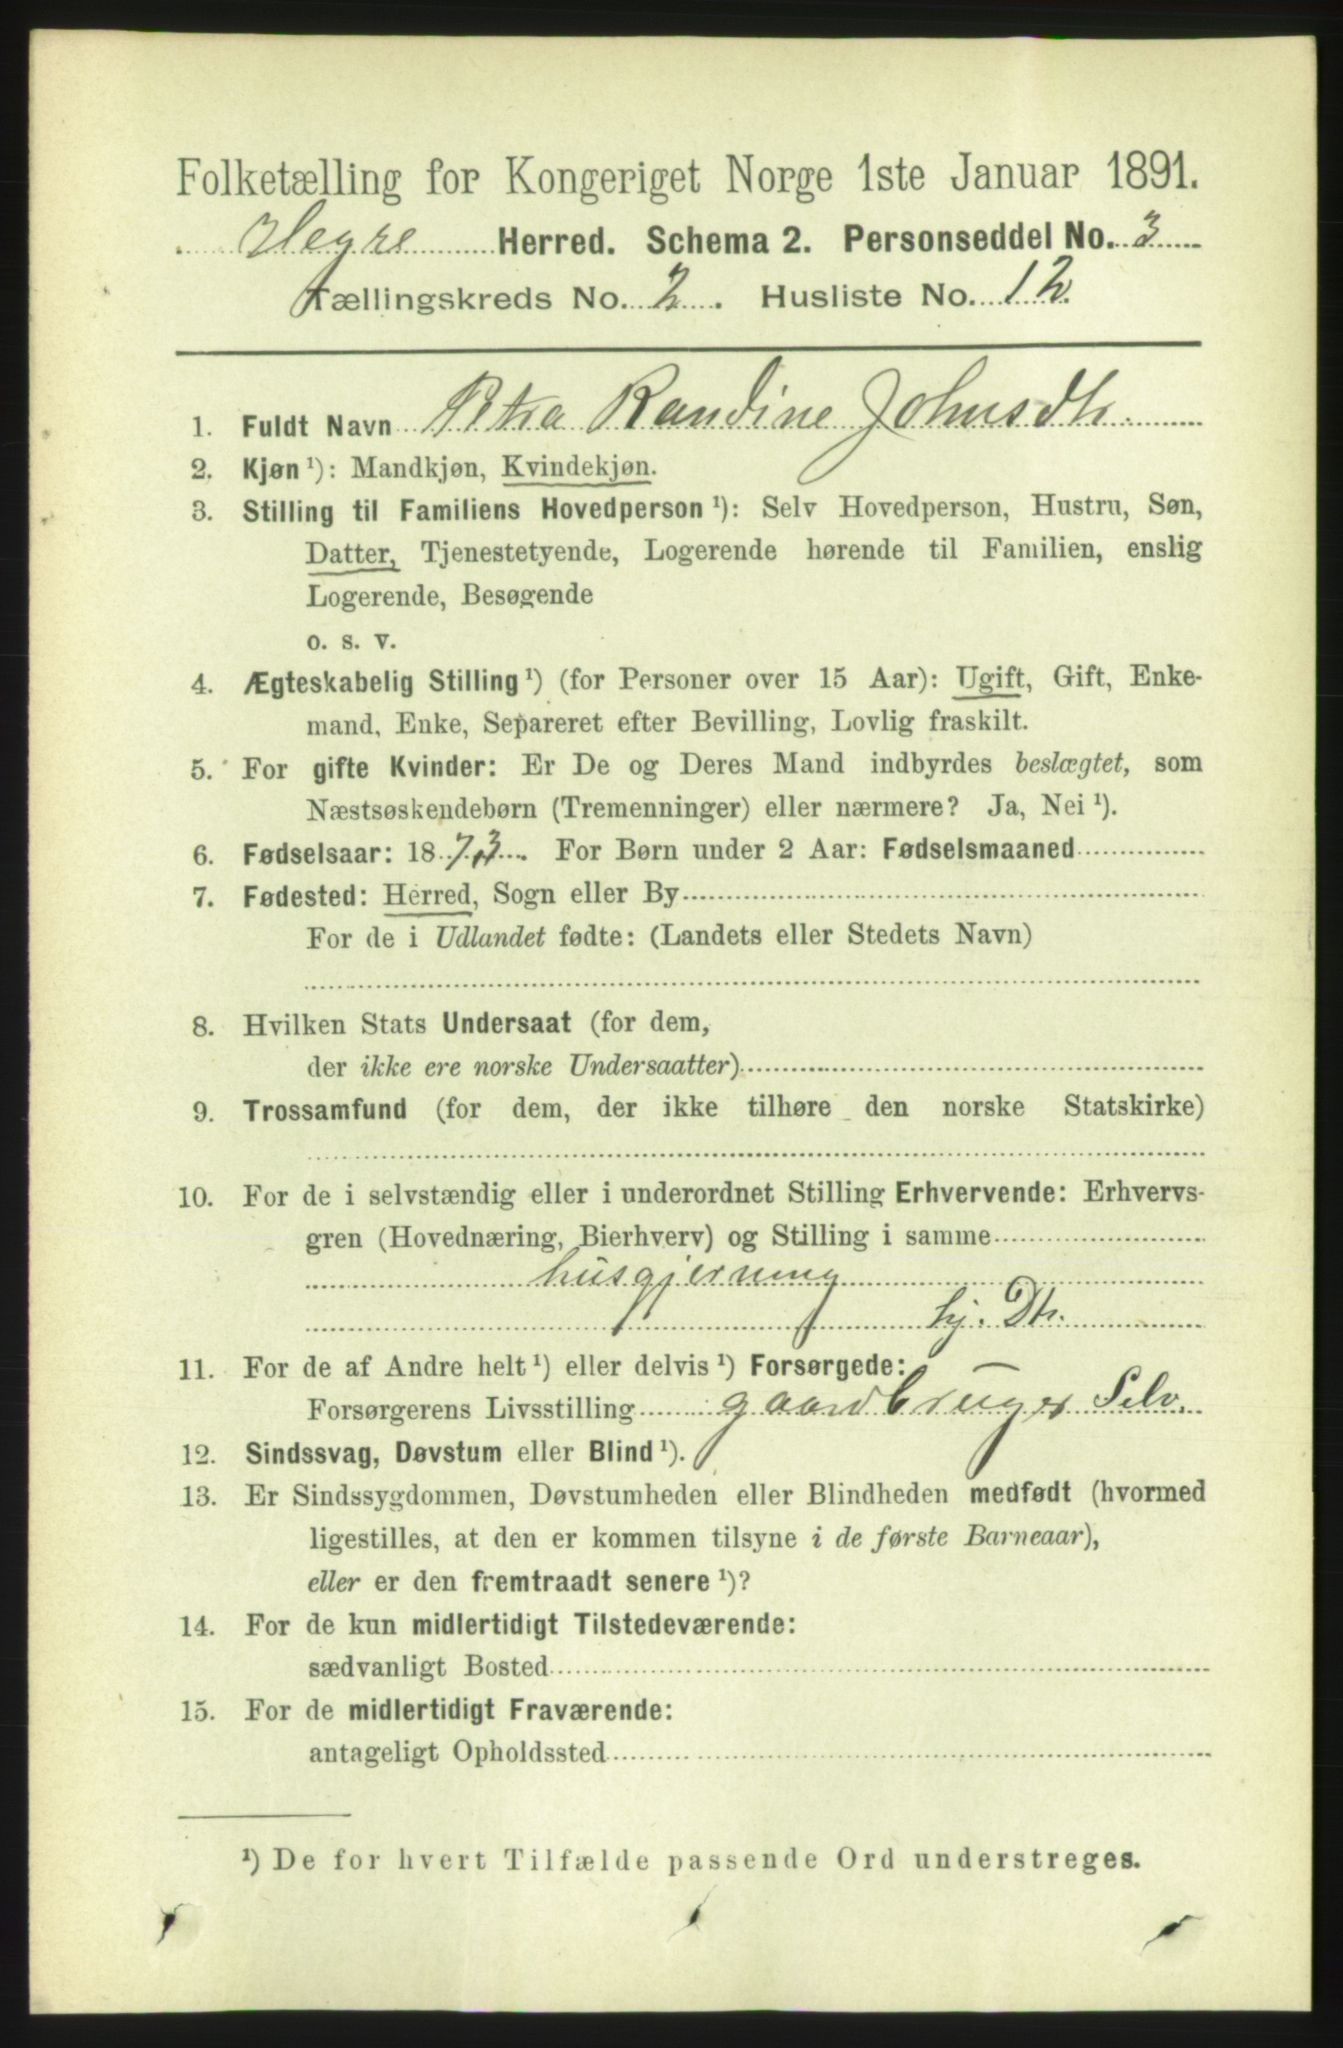 Folketælling for Kongeriget Norge 1ste Januar 1891.
Hegre Herred. Schema 2. Personseddel No. 3
Tællingskreds No. 2. Husliste No. 12.
1. Fuldt Navn Petra Randine Johnsdtr.
2. Kjøn ¹): Mandkjøn, Kvindekjøn.
3. Stilling til Familiens Hovedperson ¹): Selv Hovedperson, Hustru, Søn,
Datter, Tjenestetyende, Logerende hørende til Familien, enslig
Logerende, Besøgende
o. s. v.
4. Ægteskabelig Stilling ¹) (for Personer over 15 Aar): Ugift, Gift, Enke-
mand, Enke, Separeret efter Bevilling, Lovlig fraskilt.
5. For gifte Kvinder: Er De og Deres Mand indbyrdes beslægtet, som
Næstsøskendebørn (Tremenninger) eller nærmere? Ja, Nei ¹).
6. Fødselsaar: 1873. For Børn under 2 Aar: Fødselsmaaned
7. Fødested: Herred, Sogn eller By
For de i Udlandet fødte: (Landets eller Stedets Navn)
8. Hvilken Stats Undersaat (for dem,
der ikke ere norske Undersaatter)
9. Trossamfund (for dem, der ikke tilhøre den norske Statskirke)
10. For de i selvstændig eller i underordnet Stilling Erhvervende: Erhvervs-
gren (Hovednæring, Bierhverv) og Stilling i samme
husgjerning
hj. Dtr.
11. For de af Andre helt ¹) eller delvis ¹) Forsørgede:
Forsørgerens Livsstilling gaardbruger Selv.
12. Sindssvag, Døvstum eller Blind ¹).
13. Er Sindssygdommen, Døvstumheden eller Blindheden medfødt (hvormed
ligestilles, at den er kommen tilsyne i de første Barneaar),
eller er den fremtraadt senere ¹)?
14. For de kun midlertidigt Tilstedeværende:
sædvanligt Bosted
15. For de midlertidigt Fraværende:
antageligt Opholdssted
¹) De for hvert Tilfælde passende Ord understreges.